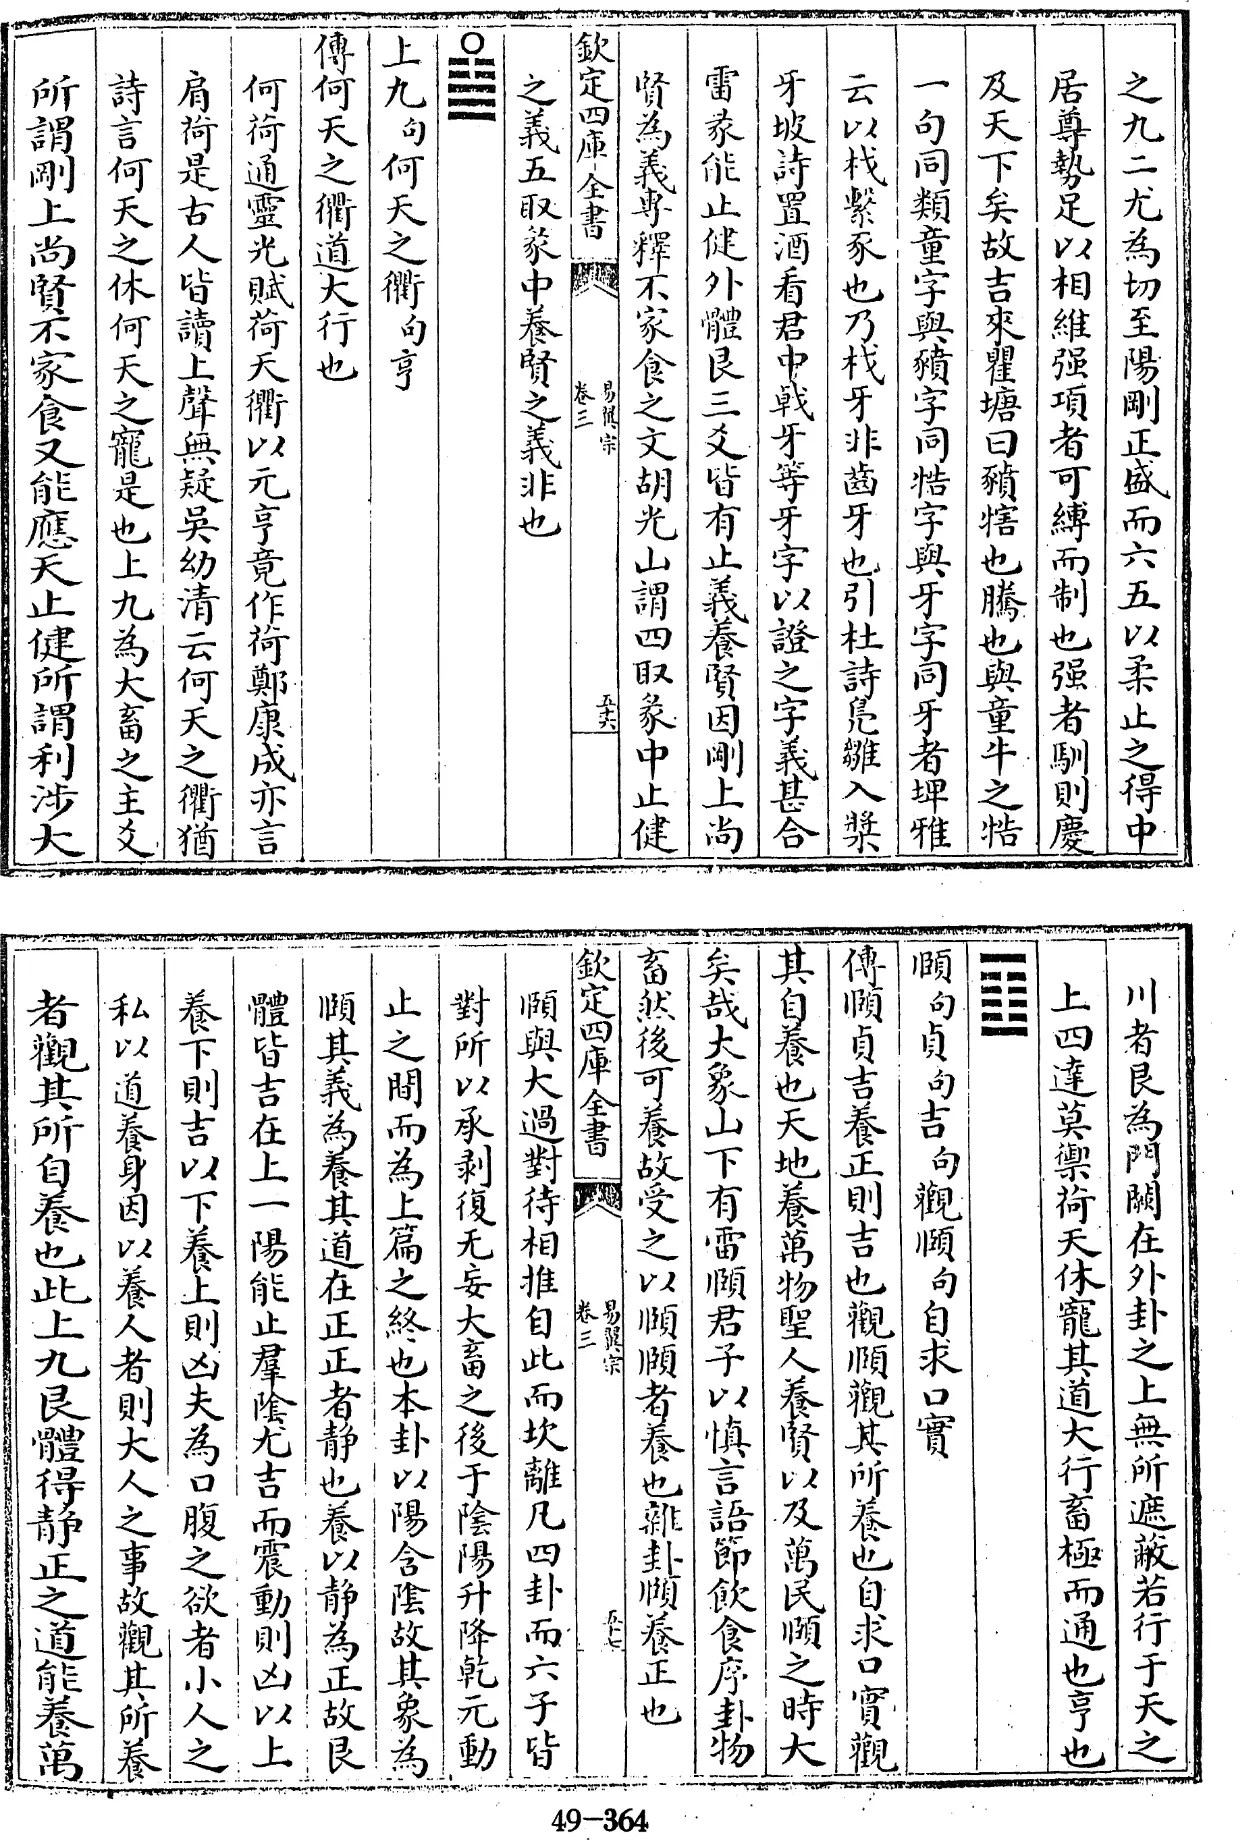 之九二尤為切至陽剛正盛而六五以柔止之得中
居尊勢足以相維强項者可縛而制也强者馴則慶
及天下矣故吉來瞿塘曰豶犗也騰也與童牛之牿
一句同類童字與豶字同牿字與牙字同牙者埤雅
云以杙繫豕也乃杙牙非齒牙也引杜詩鳧雛入槳
牙坡詩置酒看君中戟牙等牙字以證之字義甚合
雷豕能止健外體艮三爻皆有止義養賢因剛上尚
賢為義專釋不家食之文胡光山謂四取彖中止健
欽定四庫全書
易翼宗
卷三
五十六
之義五取彖中養賢之義非也
上九句何天之衢句亨
傳何天之衢道大行也
何荷通靈光賦荷天衢以元亨竟作荷鄭康成亦言
肩荷是古人皆讀上聲無疑吳幼清云何天之衢猶
詩言何天之休何天之寵是也上九為大畜之主爻
所謂剛上尚賢不家食又能應天止健所謂利涉大
川者艮為門闕在外卦之上無所遮蔽若行于天之
上四達莫禦荷天休寵其道大行畜極而通也亨也
頤句貞句吉句觀頤句自求口實
傳頤貞吉養正則吉也觀頤觀其所養也自求口實觀
其自養也天地養萬物聖人養賢以及萬民頤之時大
矣哉大象山下有雷頤君子以慎言語節飲食序卦物
畜然後可養故受之以頤頤者養也雜卦頤養正也
欽定四庫全書
易翼宗
卷三
五十七
頤與大過對待相推自此而坎離凡四卦而六子皆
對所以承剥復无妄大畜之後于陰陽升降乾元動
止之間而為上篇之終也本卦以陽含陰故其象為
頤其義為養其道在正正者静也養以静為正故艮
體皆吉在上一陽能止羣陰尤吉而震動則凶以上
養下則吉以下養上則凶夫為口腹之欲者小人之
私以道養身因以養人者則大人之事故觀其所養
者觀其所自養也此上九艮體得静正之道能養萬
49-364